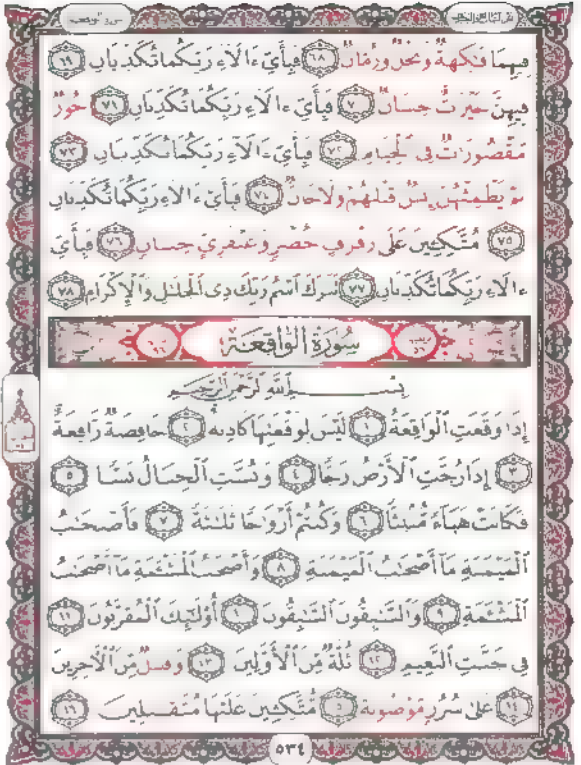 فِيهِمَا فَٰكِهَةٌ وَنَخْلٌ وَرُمَّانٌ ٦٨ فَبِأَيِّ ءَالَآءِ رَبِّكُمَا تُكَذِّبَانِ ٦٩
فِيهِنَّ خَيْرَٰتٌ حِسَانٌ ٧٠ فَبِأَيِّ ءَالَآءِ رَبِّكُمَا تُكَذِّبَانِ ٧١ حُورٌ
مَّقْصُورَٰتٌ فِي ٱلْخِيَامِ ٧٢ فَبِأَيِّ ءَالَآءِ رَبِّكُمَا تُكَذِّبَانِ ٧٣
لَمْ يَطْمِثْهُنَّ إِنسٌ قَبْلَهُمْ وَلَا جَآنٌّ ٧٤ فَبِأَيِّ ءَالَآءِ رَبِّكُمَا تُكَذِّبَانِ
٧٥ مُتَّكِـِٔينَ عَلَىٰ رَفْرَفٍ خُضْرٍ وَعَبْقَرِيٍّ حِسَانٍ ٧٦ فَبِأَيِّ
ءَالَآءِ رَبِّكُمَا تُكَذِّبَانِ ٧٧ تَبَٰرَكَ ٱسْمُ رَبِّكَ ذِي ٱلْجَلَٰلِ وَٱلْإِكْرَامِ ٧٨
سُورَةُ الوَاقِعَة
بِسْمِ ٱللَّهِ ٱلرَّحْمَٰنِ ٱلرَّحِيمِ
إِذَا وَقَعَتِ ٱلْوَاقِعَةُ ١ لَيْسَ لِوَقْعَتِهَا كَاذِبَةٌ ٢ خَافِضَةٌ رَّافِعَةٌ
٣ إِذَا رُجَّتِ ٱلْأَرْضُ رَجًّا ٤ وَبُسَّتِ ٱلْجِبَالُ بَسًّا ٥
فَكَانَتْ هَبَآءً مُّنۢبَثًّا ٦ وَكُنتُمْ أَزْوَٰجًا ثَلَٰثَةً ٧ فَأَصْحَٰبُ
ٱلْمَيْمَنَةِ مَآ أَصْحَٰبُ ٱلْمَيْمَنَةِ ٨ وَأَصْحَٰبُ ٱلْمَشْـَٔمَةِ مَآ أَصْحَٰبُ
ٱلْمَشْـَٔمَةِ ٩ وَٱلسَّٰبِقُونَ ٱلسَّٰبِقُونَ ١٠ أُو۟لَٰٓئِكَ ٱلْمُقَرَّبُونَ ١١
فِي جَنَّٰتِ ٱلنَّعِيمِ ١٢ ثُلَّةٌ مِّنَ ٱلْأَوَّلِينَ ١٣ وَقَلِيلٌ مِّنَ ٱلْءَاخِرِينَ
١٤ عَلَىٰ سُرُرٍ مَّوْضُونَةٍ ١٥ مُّتَّكِـِٔينَ عَلَيْهَا مُتَقَٰبِلِينَ ١٦
٥٣٤